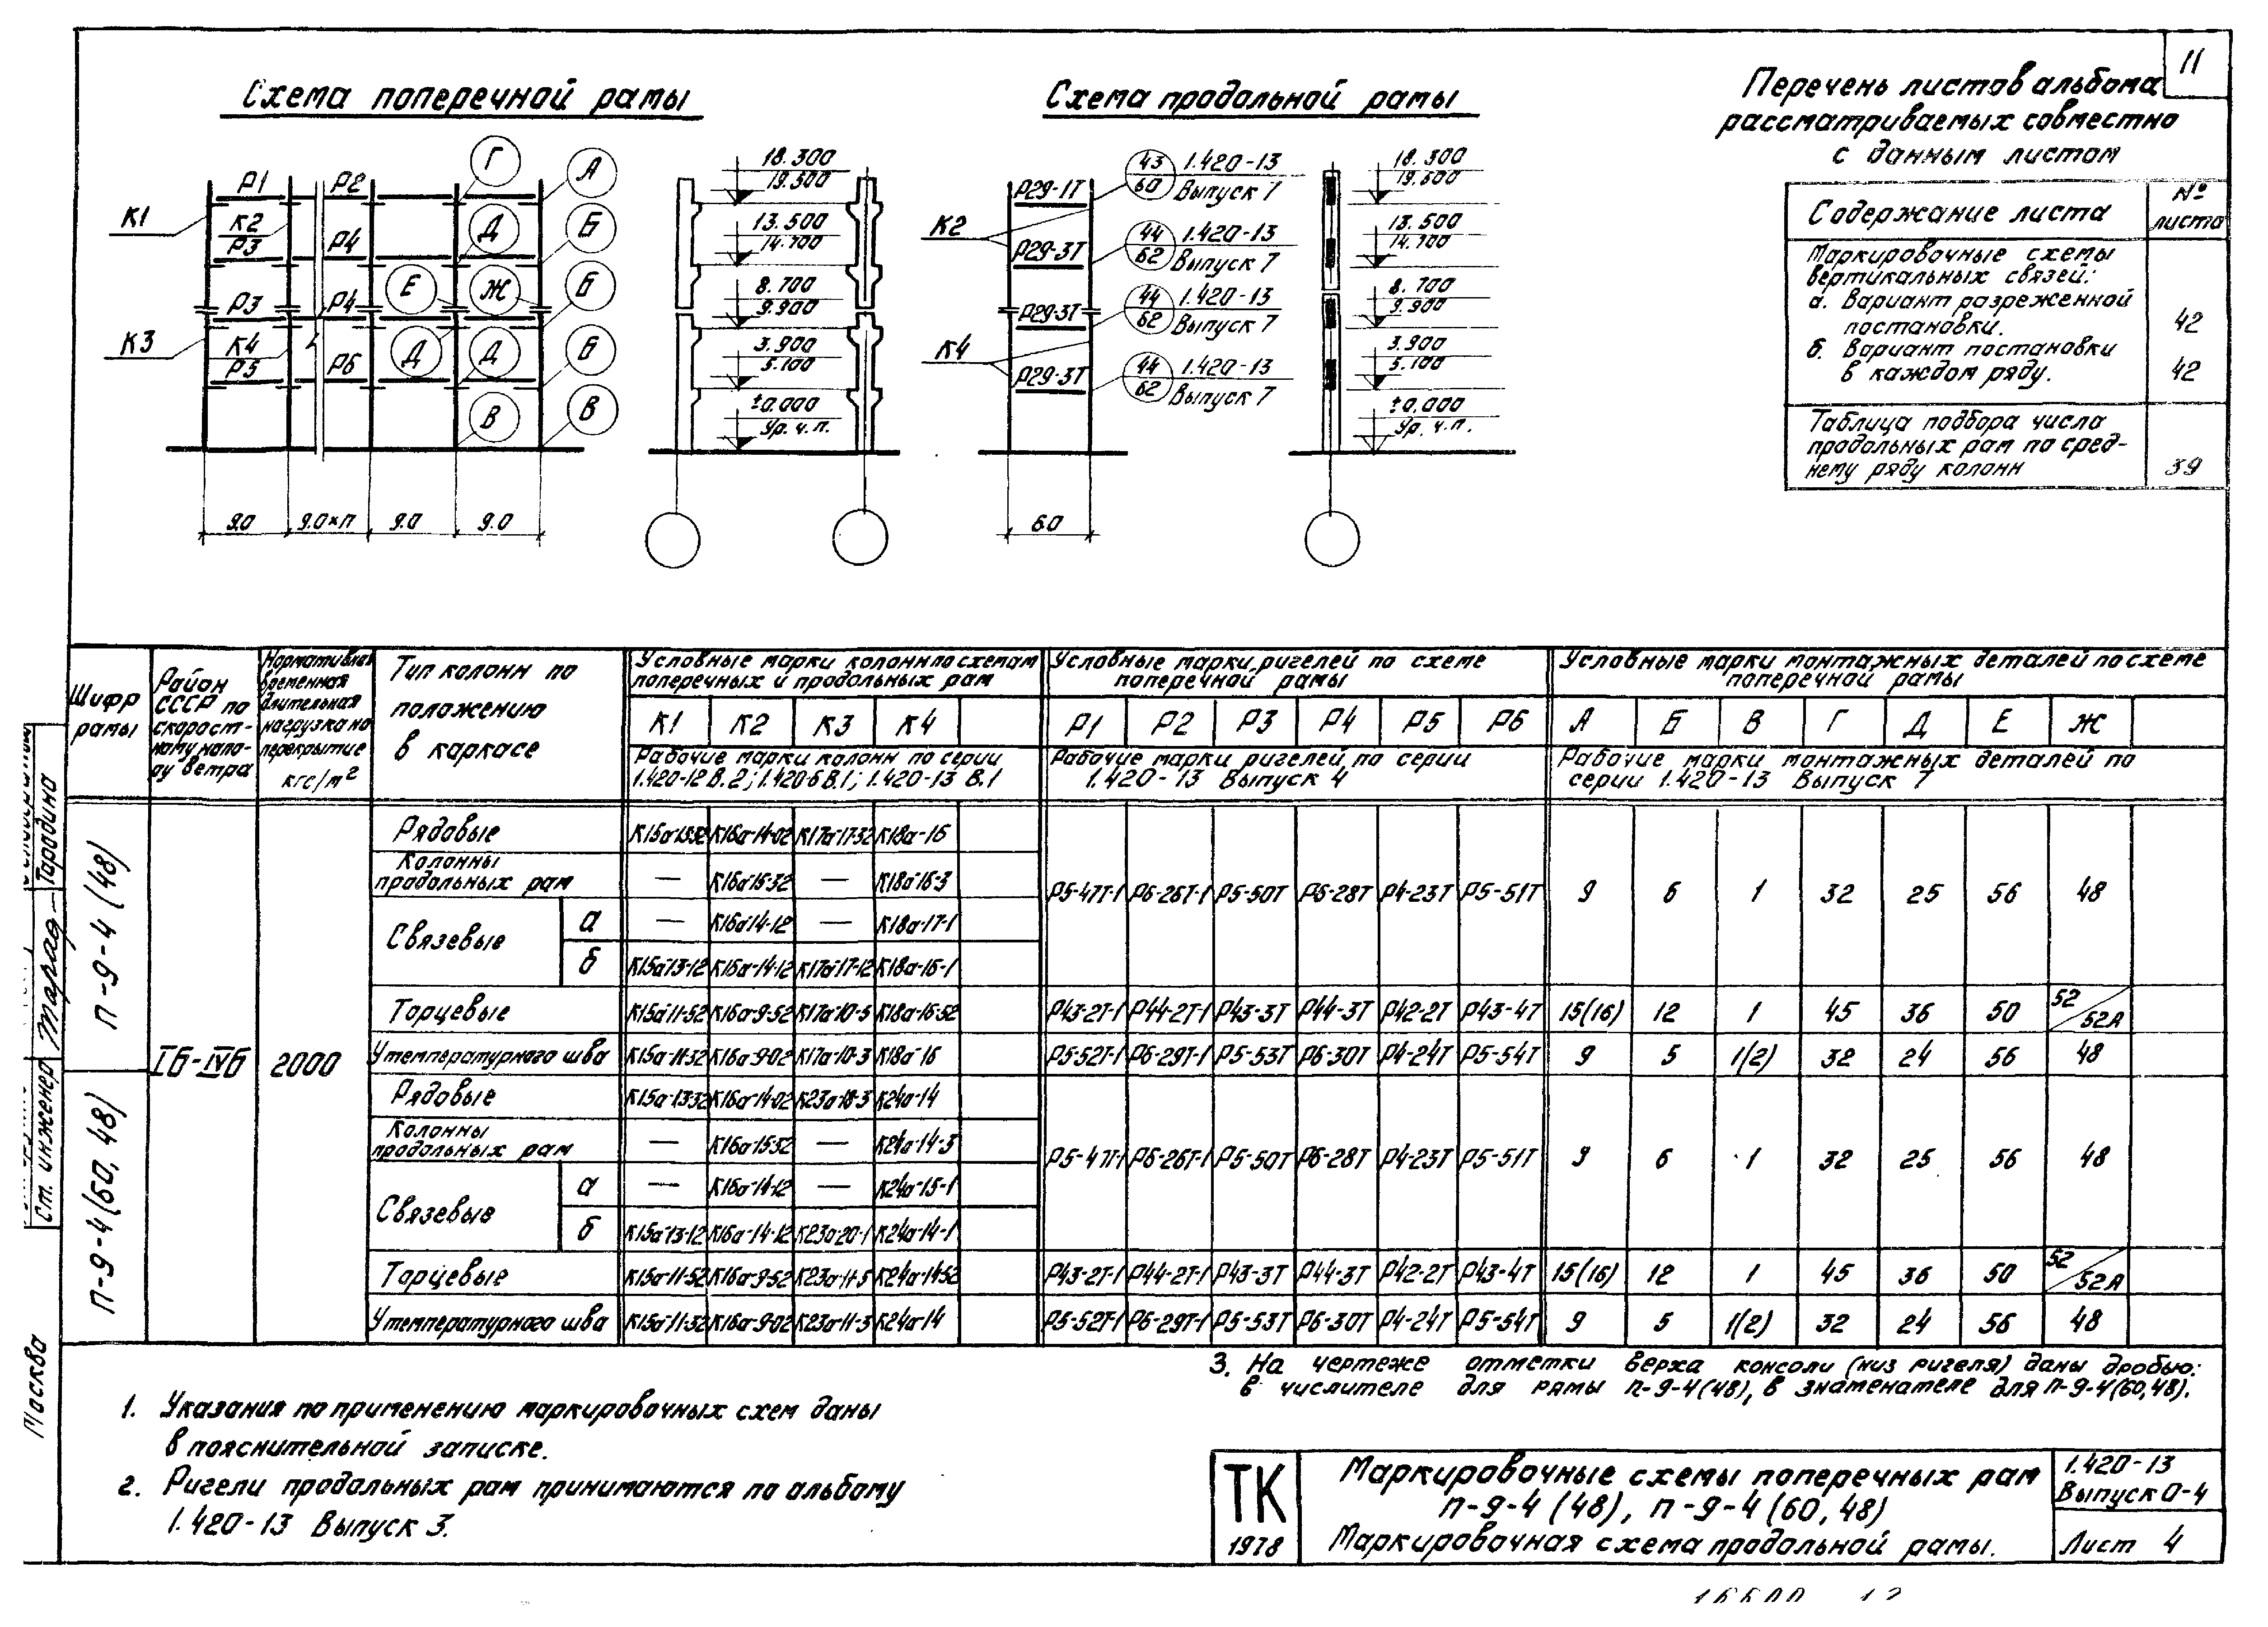 11
Схема поперечной рамы
Р1
Р2
К1
К2
Р3
Р4
Р3
Р4
К3
К4
Р5
Р6
Г
А
Д
Б
Е
Ж
Б
Д
Д
Б
В
В
9.0
9.0×п
9.0
9.0
18.300
19.500
13.500
14.700
8.700
9.900
3.900
5.100
±0.000
Ур. ч. п.
Схема продольной рамы
К2
К4
Р29-1Т
Р29-3Т
Р29-3Т
Р29-3Т
43
60
1.420-13
Выпуск 7
44
62
1.420-13
Выпуск 7
44
62
1.420-13
Выпуск 7
44
62
1.420-13
Выпуск 7
6.0
18.300
19.500
13.500
14.700
8.700
9.900
3.900
5.100
±0.000
Ур. ч. п.
Перечень листов альбома
рассматриваемых совместно
с данным листом
Содержание листа
№ листа
Маркировочные схемы
вертикальных связей:
а. Вариант разреженной
постановки. 42
б. Вариант постановки
в каждом ряду. 42
Таблица подбора числа
продольных рам по сред-
нему ряду колонн 39
Шифр рамы
Район СССР по скорост-ному напо-ру ветра
Нормативная временная длительная нагрузка на перекрытие кгс/м²
Тип колонн по положению в каркасе
Условные марки колонн по схемам
поперечных и продольных рам
К1 К2 К3 К4
Рабочие марки колонн по серии
1.420-12 В.2; 1.420-6 В.1; 1.420-13 В.1
Условные марки ригелей по схеме
поперечной рамы
Р1 Р2 Р3 Р4 Р5 Р6
Рабочие марки ригелей по серии
1.420-13 Выпуск 4
Условные марки монтажных деталей по схеме
поперечной рамы
А Б В Г Д Е Ж
Рабочие марки монтажных деталей по
серии 1.420-13 Выпуск 7
П-9-4 (48)
П-9-4 (60, 48)
Iб-IVб
2000
Рядовые К15а-13-32 К16а-14-02 К17а-17-32 К18а-16
Колонны
продольных рам — К16а-15-32 — К18а-16-3
Связевые
а — К16а-14-12 — К18а-17-1
б К15а-13-12 К16а-14-12 К17а-17-12 К18а-16-1
Р5-47Т-1 Р6-26Т-1 Р5-50Т Р6-28Т Р4-23Т Р5-51Т 9 6 1 32 25 56 48
Торцевые К15а-11-52 К16а-9-52 К17а-10-5 К18а-16-52 Р43-2Т-1 Р44-2Т-1 Р43-3Т Р44-3Т Р42-2Т Р43-4Т 15(16) 12 1 45 36 50 52/52А
У температурного шва К15а-11-32 К16а-9-02 К17а-10-3 К18а-16 Р5-52Т-1 Р6-29Т-1 Р5-53Т Р6-30Т Р4-24Т Р5-54Т 9 5 1(2) 32 24 56 48
Рядовые К15а-13-32 К16а-14-02 К23а-18-3 К24а-14
Колонны
продольных рам — К16а-15-32 — К24а-14-3
Связевые
а — К16а-14-12 — К24а-15-1
б К15а-13-12 К16а-14-12 К23а-20-1 К24а-14-1
Р5-47Т-1 Р6-26Т-1 Р5-50Т Р6-28Т Р4-23Т Р5-51Т 9 6 1 32 25 56 48
Торцевые К15а-11-52 К16а-9-52 К23а-11-5 К24а-14-52 Р43-2Т-1 Р44-2Т-1 Р43-3Т Р44-3Т Р42-2Т Р43-4Т 15(16) 12 1 45 36 50 52/52А
У температурного шва К15а-11-32 К16а-9-02 К23а-11-3 К24а-14 Р5-52Т-1 Р6-29Т-1 Р5-53Т Р6-30Т Р4-24Т Р5-54Т 9 5 1(2) 32 24 56 48
1. Указания по применению маркировочных схем даны
в пояснительной записке.
2. Ригели продольных рам принимаются по альбому
1.420-13 Выпуск 3.
3. На чертеже отметки верха консоли (низ ригеля) даны дробью:
в числителе для рамы п-9-4(48), в знаменателе для п-9-4(60,48).
ТК
1978
Маркировочные схемы поперечных рам
п-9-4 (48), п-9-4 (60, 48)
Маркировочная схема продольной рамы.
1.420-13
Выпуск 0-4
Лист 4
Тародина
Ст. инженер
Москва